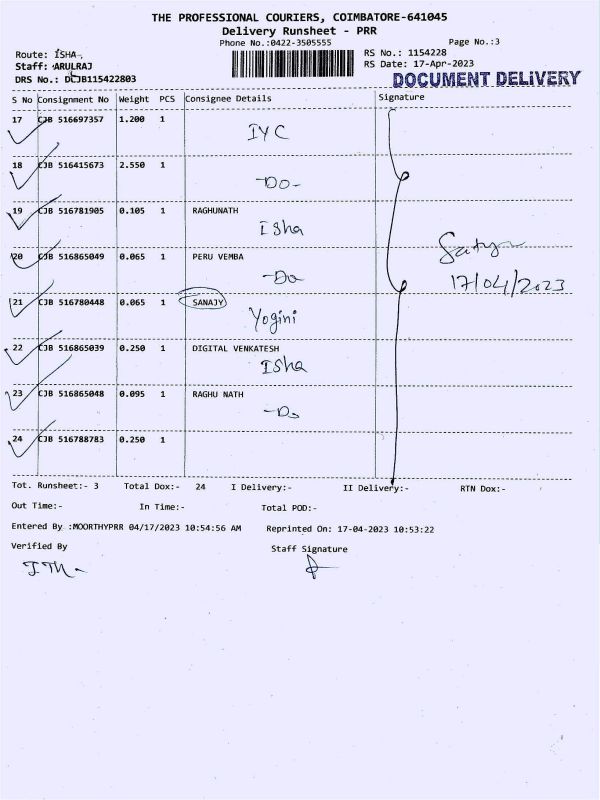 THE PROFESSIONAL COURIERS, COIMBATORE-641045
Delivery Runsheet - PRR
Phone No.:0422-3505555
Page No.:3
Route: ISHA
RS No.: 1154228
Staff: ARULRAJ
RS Date: 17-Apr-2023
DRS No.: DCJB115422803
DOCUMENT DELIVERY
S No Consignment No Weight PCS Consignee Details Signature
17 CJB 516697357 1.200 1
IYC
18 CJB 516415673 2.550 1
-DO-
19 CJB 516781905 0.105 1 RAGHUNATH
Isha
20 CJB 516865049 0.065 1 PERU VEMBA
-Do
Satya
17/04/2023
21 CJB 516780448 0.065 1 SANAJY
Yogini
22 CJB 516865039 0.250 1 DIGITAL VENKATESH
Isha
23 CJB 516865048 0.095 1 RAGHU NATH
-Do
24 CJB 516788783 0.250 1
Tot. Runsheet:- 3 Total Dox:- 24 I Delivery:- II Delivery:- RTN Dox:-
Out Time:- In Time:- Total POD:-
Entered By :MOORTHYPRR 04/17/2023 10:54:56 AM Reprinted On: 17-04-2023 10:53:22
Verified By Staff Signature